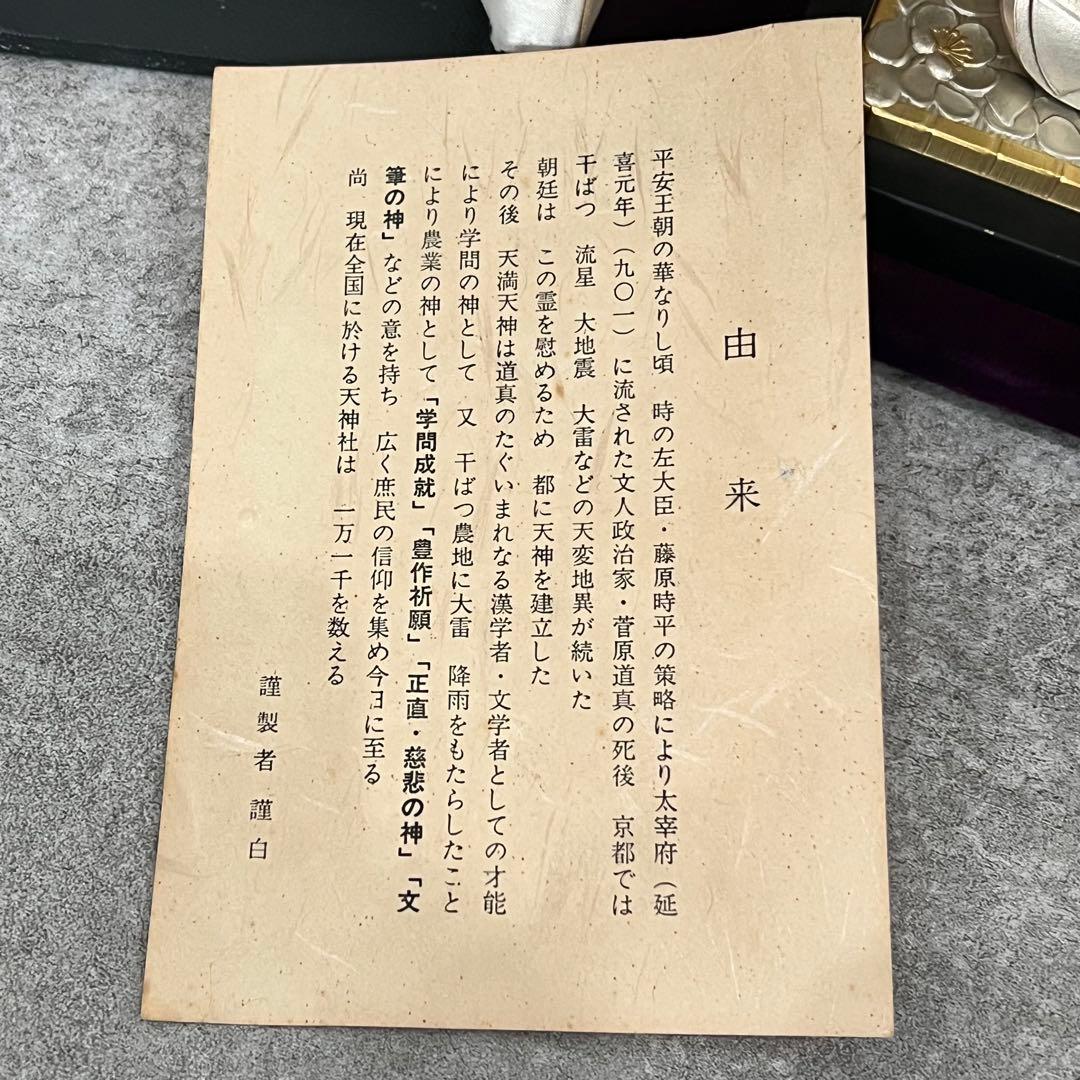 由来
平安王朝の華なりし頃　時の左大臣・藤原時平の策略により太宰府（延
喜元年）（九〇一）に流された文人政治家・菅原道真の死後　京都では
干ばつ　流星　大地震　大雷などの天変地異が続いた
朝廷は　この霊を慰めるため　都に天神を建立した
その後　天満天神は道真のたぐいまれなる漢学者・文学者としての才能
により学問の神として　又　干ばつ農地に大雷　降雨をもたらしたこと
により農業の神として「学問成就」「豊作祈願」「正直・慈悲の神」「文
筆の神」などの意を持ち　広く庶民の信仰を集め今日に至る
尚　現在全国に於ける天神社は　一万一千を数える
謹製者 謹白